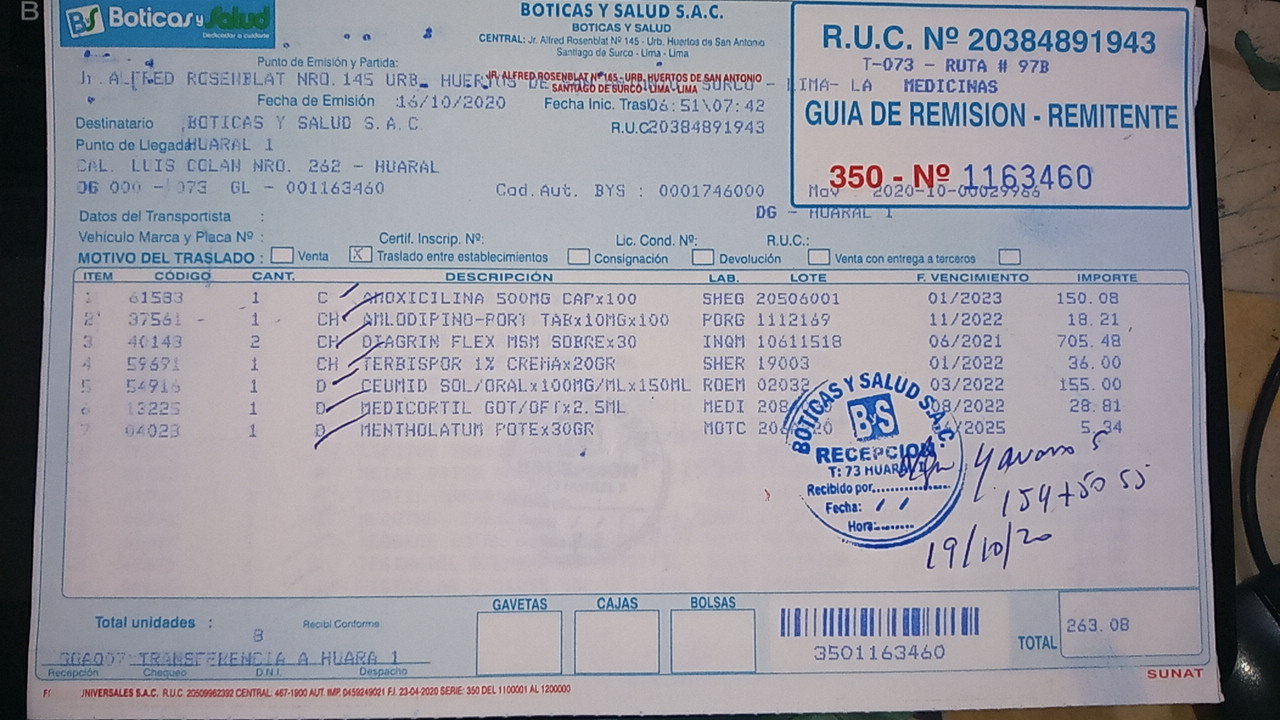 B
BS Boticas y Salud
Dedicados a cuidarte
BOTICAS Y SALUD S.A.C.
BOTICAS Y SALUD
CENTRAL: Jr. Alfred Rosenblat Nº 145 - Urb. Huertos de San Antonio
Santiago de Surco - Lima - Lima
R.U.C. Nº 20384891943
T-073 - RUTA # 97B
MEDICINAS
GUIA DE REMISION - REMITENTE
350 - Nº 1163460
Punto de Emisión y Partida:
Jr. ALFRED ROSENBLAT NRO. 145 URB. HUERTOS DE SURCO - LIMA- LA
JR. ALFRED ROSENBLAT Nº 165 - URB. HUERTOS DE SAN ANTONIO
SANTIAGO DE SURCO - LIMA - LIMA
Fecha de Emisión 16/10/2020 Fecha Inic. Trasl 06:51\07:42
Destinatario BOTICAS Y SALUD S.A.C. R.U.C 20384891943
Punto de Llegada HUARAL 1
CAL. LUIS COLAN NRO. 262 - HUARAL
DG 000 - 073 GL - 001163460 Cod.Aut. BYS : 0001746000 Mov 2020-10-00029966
DG - HUARAL 1
Datos del Transportista :
Vehículo Marca y Placa Nº : Certif. Inscrip. Nº: Lic. Cond. Nº: R.U.C.:
MOTIVO DEL TRASLADO : Venta X Traslado entre establecimientos Consignación Devolución Venta con entrega a terceros
ITEM CÓDIGO CANT. DESCRIPCIÓN LAB. LOTE F. VENCIMIENTO IMPORTE
1 61583 1 C AMOXICILINA 500MG CAPx100 SHEG 20506001 01/2023 150.08
2 37561 - 1 CH AMLODIPINO-PORT TABx10MGx100 PORG 1112169 11/2022 18.21
3 40143 2 CH DIAGRIN FLEX MSM SOBREx30 INQM 10611518 06/2021 705.48
4 59691 1 CH TERBISPOR 1% CREMAx20GR SHER 19003 01/2022 36.00
5 54916 1 D CEUMID SOL/ORALx100MG/MLx150ML ROEM 02032 03/2022 155.00
6 13225 1 D MEDICORTIL GOT/OFTx2.5ML MEDI 208 08/2022 28.81
7 04023 1 D MENTHOLATUM POTEx30GR MOTC 2025 5.34
BOTICAS Y SALUD S.A.C.
BYS
RECEPCION
T: 73 HUARAL 1
Recibido por
Fecha: / /
Hora:
19/10/20
Total unidades : 8 Recibí Conforme
GAVETAS CAJAS BOLSAS
3501163460
TOTAL 263.08
TRANSFERENCIA A HUARA 1
Recepción Chequeo D.N.I. Despacho
SUNAT
UNIVERSALES S.A.C. R.U.C. 20509962392 CENTRAL: 467-1900 AUT. IMP. 0459249021 F.I. 23-04-2020 SERIE: 350 DEL 1100001 AL 1200000